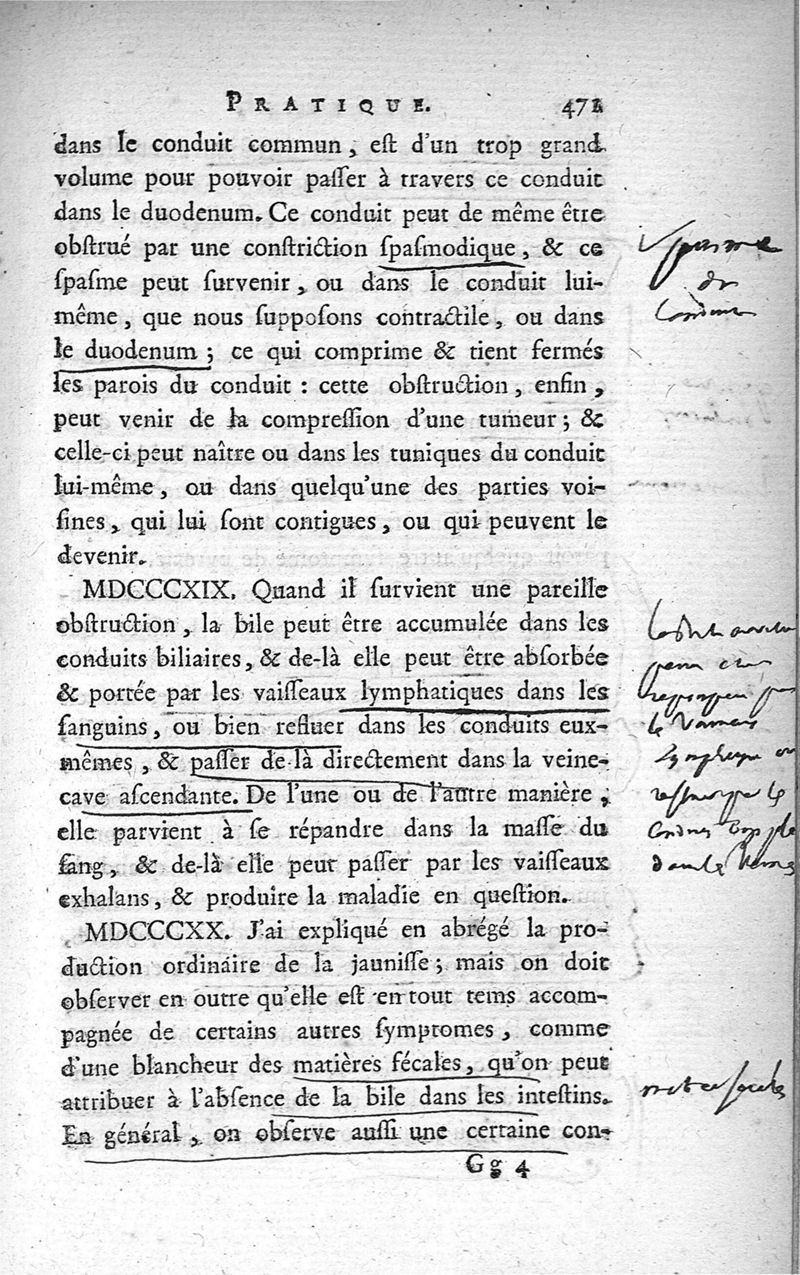 PRATIQUE. 471
dans le conduit commun, eſt d'un trop grand
volume pour pouvoir paſſer à travers ce conduit
dans le duodenum. Ce conduit peut de même être
obſtrué par une conſtriction ſpaſmodique, & ce
ſpaſme peut ſurvenir, ou dans le conduit lui-
même, que nous ſuppoſons contractile, ou dans
le duodenum ; ce qui comprime & tient fermés
les parois du conduit : cette obſtruction, enfin,
peut venir de la compreſſion d'une tumeur ; &
celle-ci peut naître ou dans les tuniques du conduit
lui-même, ou dans quelqu'une des parties voi-
ſines, qui lui ſont contigues, ou qui peuvent le
devenir.
MDCCCXIX. Quand il ſurvient une pareille
obſtruction, la bile peut être accumulée dans les
conduits biliaires, & de-là elle peut être abſorbée
& portée par les vaiſſeaux lymphatiques dans les
ſanguins, ou bien refluer dans les conduits eux-
mêmes, & paſſer de-là directement dans la veine-
cave aſcendante. De l'une ou de l'autre manière,
elle parvient à ſe répandre dans la maſſe du
ſang, & de-là elle peut paſſer par les vaiſſeaux
exhalans, & produire la maladie en queſtion.
MDCCCXX. J'ai expliqué en abrégé la pro-
duction ordinaire de la jauniſſe ; mais on doit
obſerver en outre qu'elle eſt en tout tems accom-
pagnée de certains autres ſymptomes, comme
d'une blancheur des matières fécales, qu'on peut
attribuer à l'abſence de la bile dans les inteſtins.
En général, on obſerve auſſi une certaine con-
Gg 4